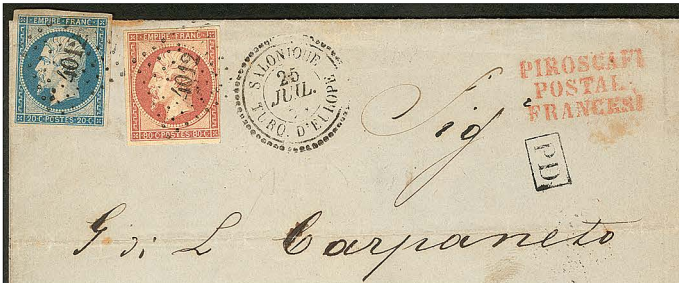 EMPIRE FRANC
4012
20 C POSTES 20 C
EMPIRE FRANC
4012
80 C POSTES 80 C
SALONIQUE
25
JUIL.
TURQ. D'EUROPE
PIROSCAFI
POSTALI
FRANCESI
Sig
PD
G di L Carpaneto